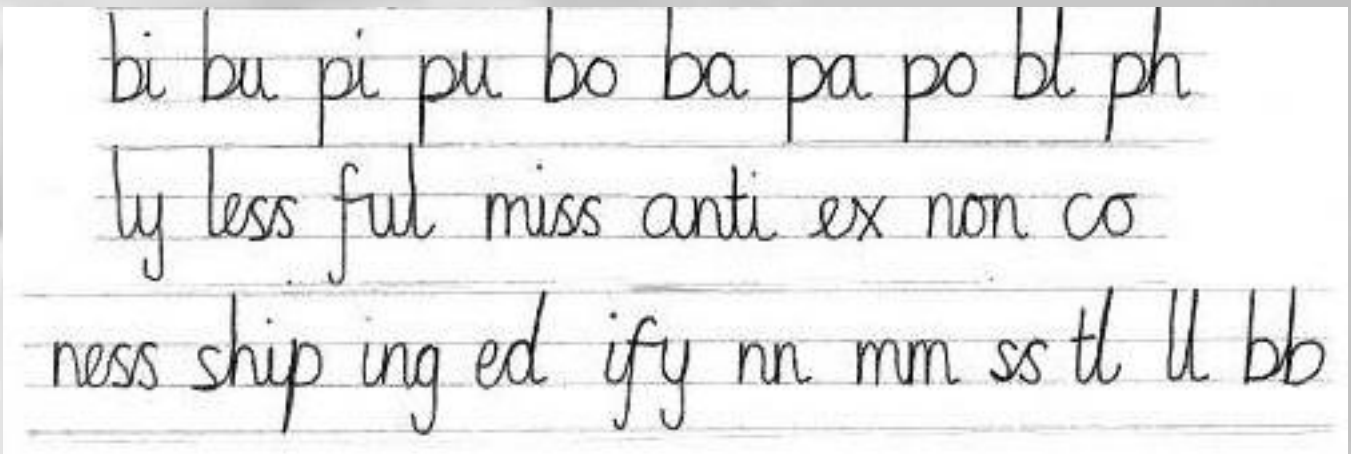 bi bu pi pu bo ba pa po bl ph
ly less ful miss anti ex non co
ness ship ing ed ify nn mm ss tl ll bb